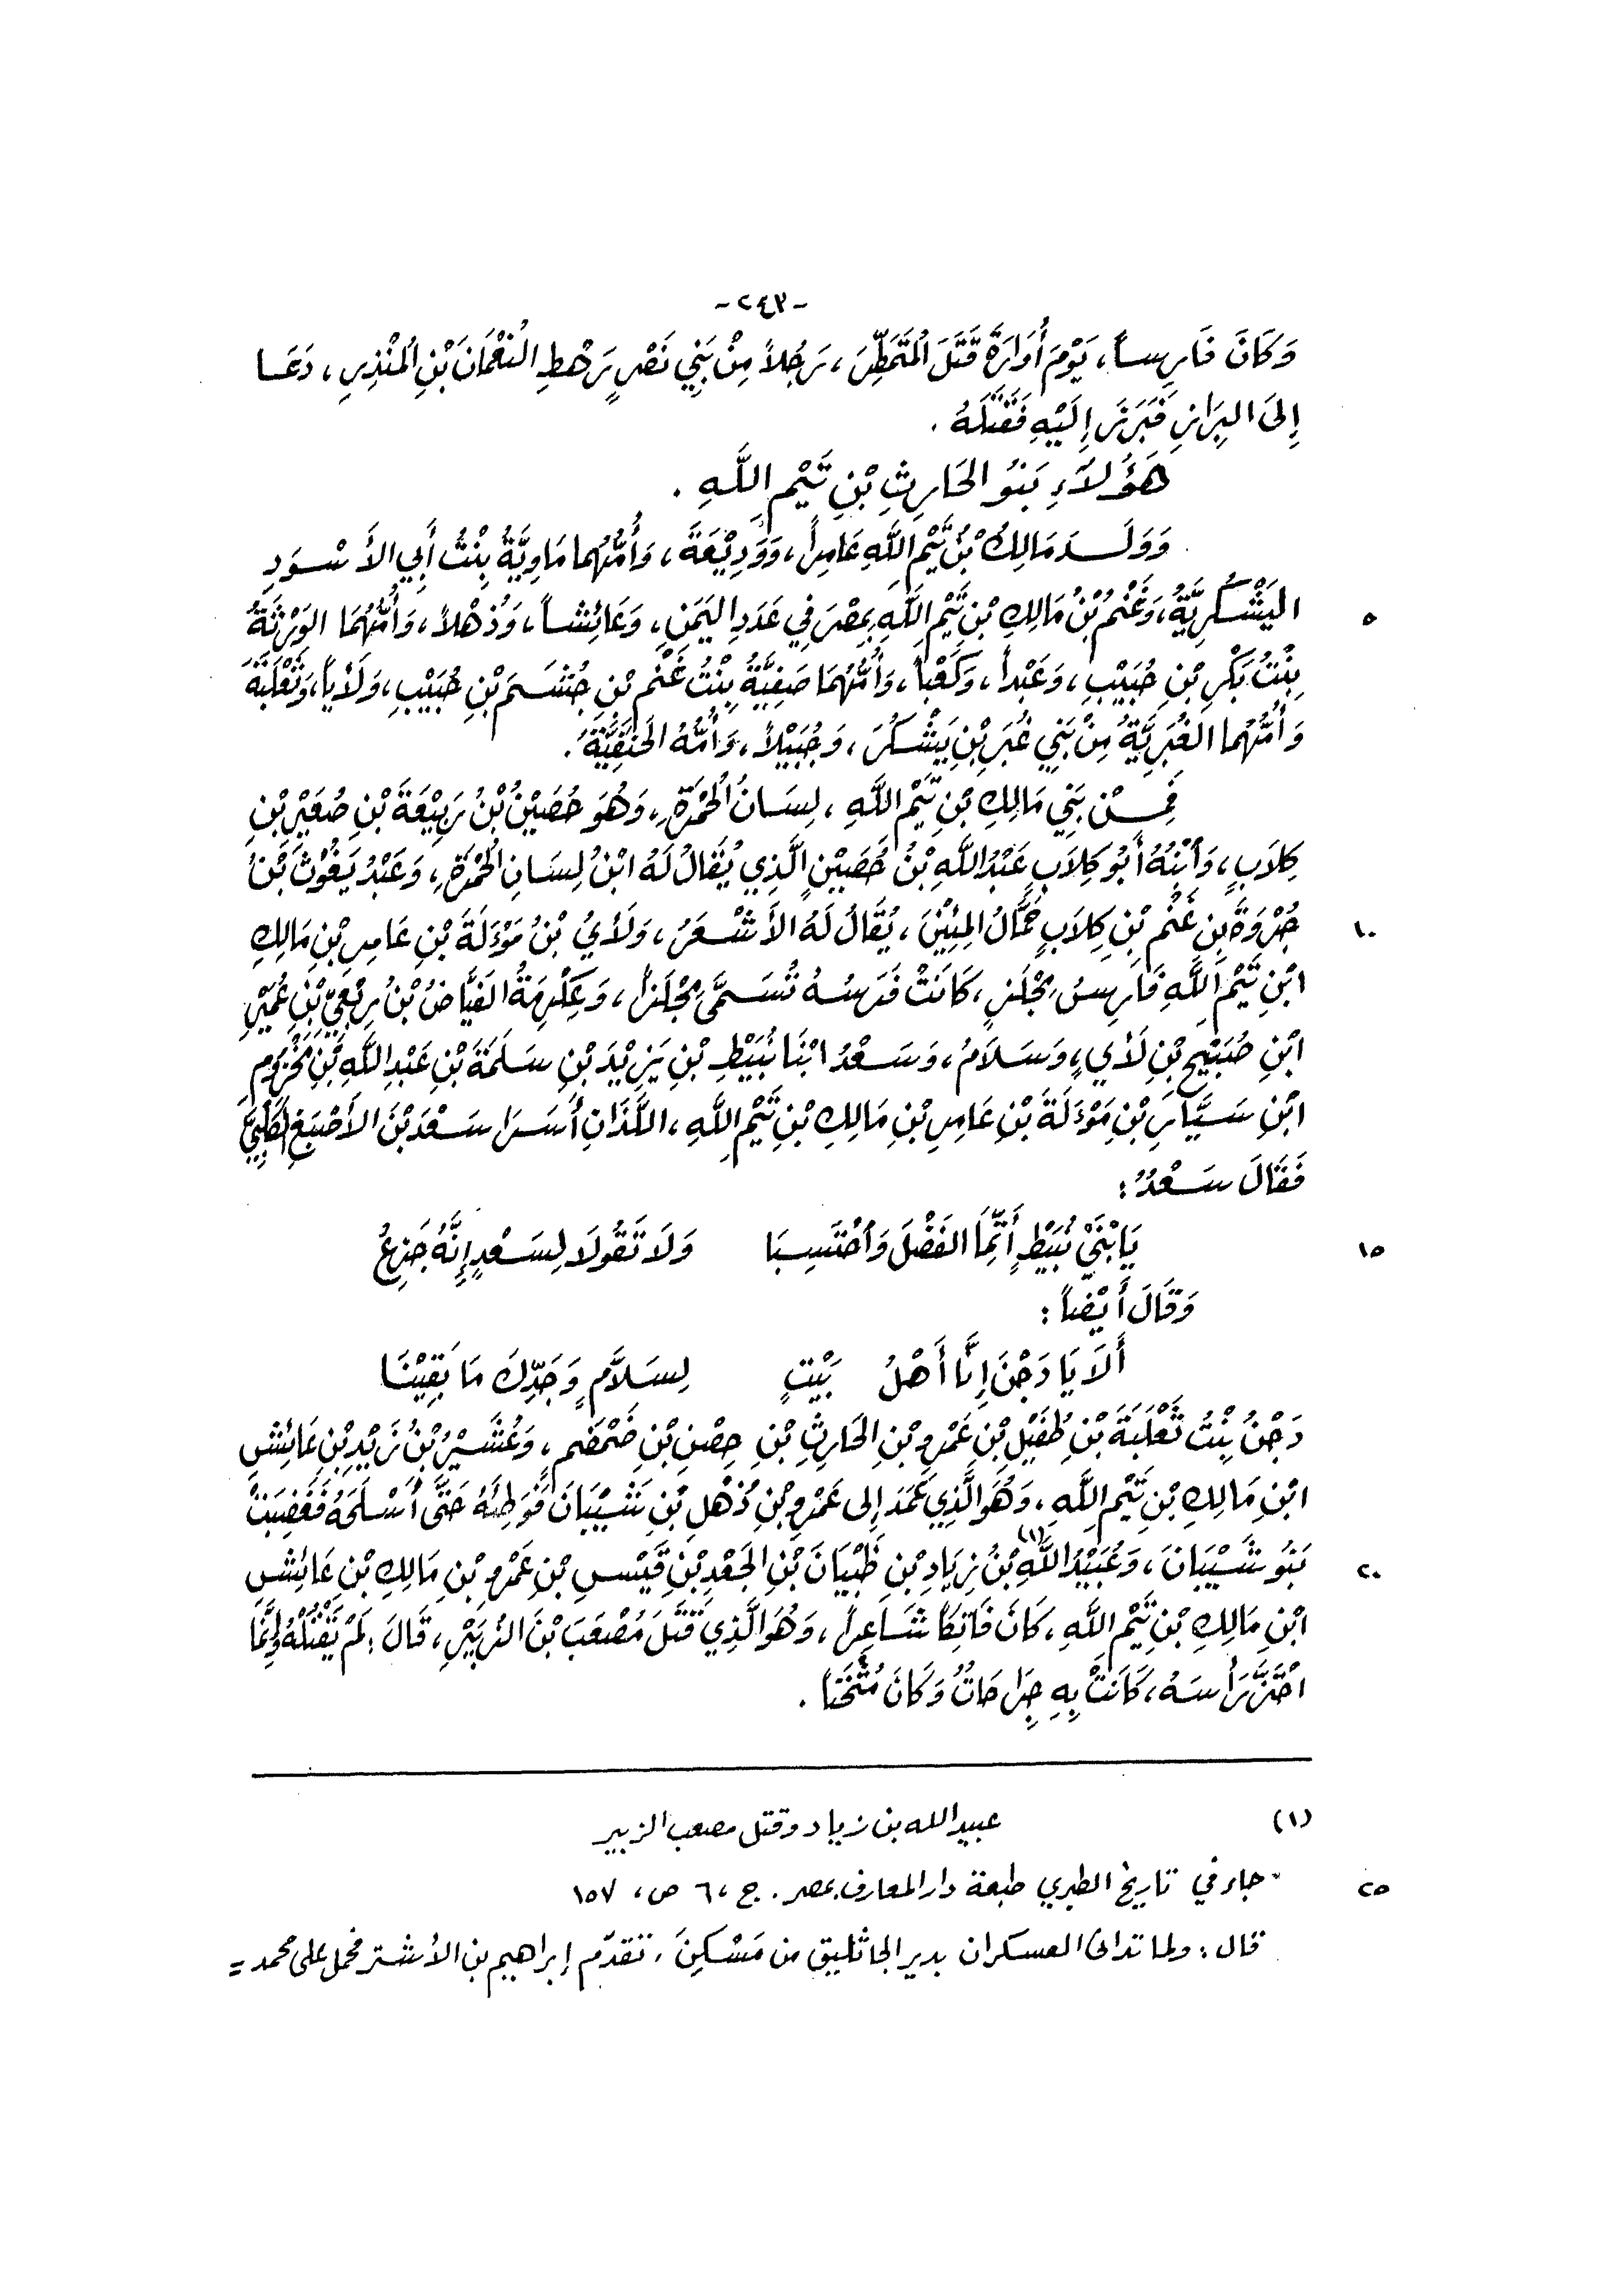 -٢٤٣-
وَكَانَ فَارِساً، يَوْمَ أُوَارَةَ قَتَلَ الْمُتَمَطِّرَ، رَجُلاً مِنْ بَنِي نَصْرٍ رَهْطِ النُعْمَانَ بْنِ الْمُنْذِرِ، دَعَا
إِلَى البِرَازِ فَبَرَزَ إِلَيْهِ فَقَتَلَهُ .
هَؤُلاَءِ بَنُو الحَارِثِ بْنِ تَيْمِ اللَّهِ .
وَوَلَدَ مَالِكُ بْنُ تَيْمِ اللَّهِ عَامِراً، وَوَدِيْعَةَ، وَأُمُّهُما مَاوِيَّةُ بِنْتُ أَبِي الأَسْوَدِ
اليَشْكُرِيَّةُ، وَغَنْمُ بْنُ مَالِكِ بْنِ تَيْمِ اللَّهِ بِمِصْرَ فِي عَدَدِ اليَمَنِ، وَعَائِشاً، وَذُهْلاً، وَأُمُّهُمَا الوَرْثَةُ ٥
بِنْتُ بَكْرِ بْنِ حُبَيْبِ، وَعَبْداً، وَكَعْباً، وَأُمُّهُمَا صَفِيَّةُ بِنْتُ غَنْمِ بْنِ جُشَمَ بْنِ حُبَيْبِ، وَلَأْياً، وَثَعْلَبَةَ
وَأُمُّهُما الغُبَرِيَّةُ مِنْ بَنِي غُبَرِ بْنِ يَشْكُرَ، وَجُبَيْلاً، وَأُمُّهُ الحَنَفِيَّةُ .
فَمِنْ بَنِي مَالِكِ بْنِ تَيْمِ اللَّهِ، لِسَانُ الْحُمَّرَةِ، وَهُوَ حُصَيْنُ بْنُ رَبِيْعَةَ بْنِ صُعَيْرِ بْنِ
كِلاَبٍ، وَابْنُهُ أَبُو كِلاَبٍ عَبْدُ اللَّهِ بْنُ حُصَيْنٍ الَّذِي يُقَالُ لَهُ ابْنُ لِسَانِ الْحُمَّرَةِ، وَعَبْدُ يَغُوْثَ بْنُ
جُرْوَةَ بْنِ غَنْمِ بْنِ كِلاَبٍ حَمَّالُ المِئِيْنَ، يُقَالُ لَهُ الأَشْعَرُ، وَلَأْيُ بْنُ مَوْءَلَةَ بْنِ عَامِرِ بْنِ مَالِكِ ١٠
ابْنِ تَيْمِ اللَّهِ فَارِسُ مِجْلَزٍ، كَانَتْ فَرَسُهُ تُسَمَّى مِجْلَزاً، وَعِكْرِمَةُ الفَيَّاضُ بْنُ رِبْعِيِّ بْنِ عُمَيْرِ
ابْنِ صُبَيْحِ بْنِ لَأْيٍ، وَسَلاَمُ، وَسَعْدُ ابْنَا نُبَيْطِ بْنِ يَزِيْدَ بْنِ سَلَمَةَ بْنِ عَبْدِ اللَّهِ بْنِ مَخْزُومِ
ابْنِ سَيَّارِ بْنِ مَوْءَلَةَ بْنِ عَامِرِ بْنِ مَالِكِ بْنِ تَيْمِ اللَّهِ، اللَّذَانِ أَسَرَا سَعْدَ بْنَ الأَصْبَغِ الكَلْبِيَّ
فَقَالَ سَعْدٌ:
يَا بْنَيْ نُبَيْطٍ أَتِمَّا الفَضْلَ وَاحْتَسِبَا وَلاَ تَقُولاَ لِسَعْدٍ إِنَّهُ جَزِعُ ١٥
وَقَالَ أَيْضاً:
أَلاَ يَا دَجْنَ إِنَّا أَهْلُ بَيْتٍ لِسَلاَّمٍ وَجَدِّكِ مَا بَقِيْنَا
دَجْنُ بِنْتُ ثَعْلَبَةَ بْنِ طُفَيْلِ بْنِ عَمْرِو بْنِ الحَارِثِ بْنِ حِصْنِ بْنِ ضَمْضَمٍ، وَعُشَيْرُ بْنُ زَيْدِ بْنِ عَائِشِ
ابْنِ مَالِكِ بْنِ تَيْمِ اللَّهِ، وَهُوَ الَّذِي عَمَدَ إِلى عَمْرِو بْنِ ذُهْلِ بْنِ شَيْبَانَ فَوَطِئَهُ حَتَّى أَسْلَحَهُ فَغَضِبَتْ
بَنُو شَيْبَانَ، وَعُبَيْدُ اللَّهِ(١) بْنُ زِيَادِ بْنِ ظَبْيَانَ بْنِ الجَعْدِ بْنِ قَيْسِ بْنِ عَمْرِو بْنِ مَالِكِ بْنِ عَائِشِ ٢٠
ابْنِ مَالِكِ بْنِ تَيْمِ اللَّهِ، كَانَ فَاتِكاً شَاعِراً، وَهُوَ الَّذِي قَتَلَ مُصْعَبَ بْنَ الزُبَيْرِ، قَالَ: لَمْ يَقْتُلْهُ وَإِنَّمَا
احْتَزَّ رَأْسَهُ، كَانَتْ بِهِ جِرَاحَاتٌ وَكَانَ مُثْخَناً .
(١) عبيد الله بن زياد وقتل مصعب الزبير
- جاء في تاريخ الطبري طبعة دار المعارف بمصر. ج، ٦ ص، ١٥٧ ٢٥
قال: ولما تدانى العسكران بدير الجاثليق من مَسْكِنَ، تقدّم إبراهيم بن الأشتر فحمل على محمد =